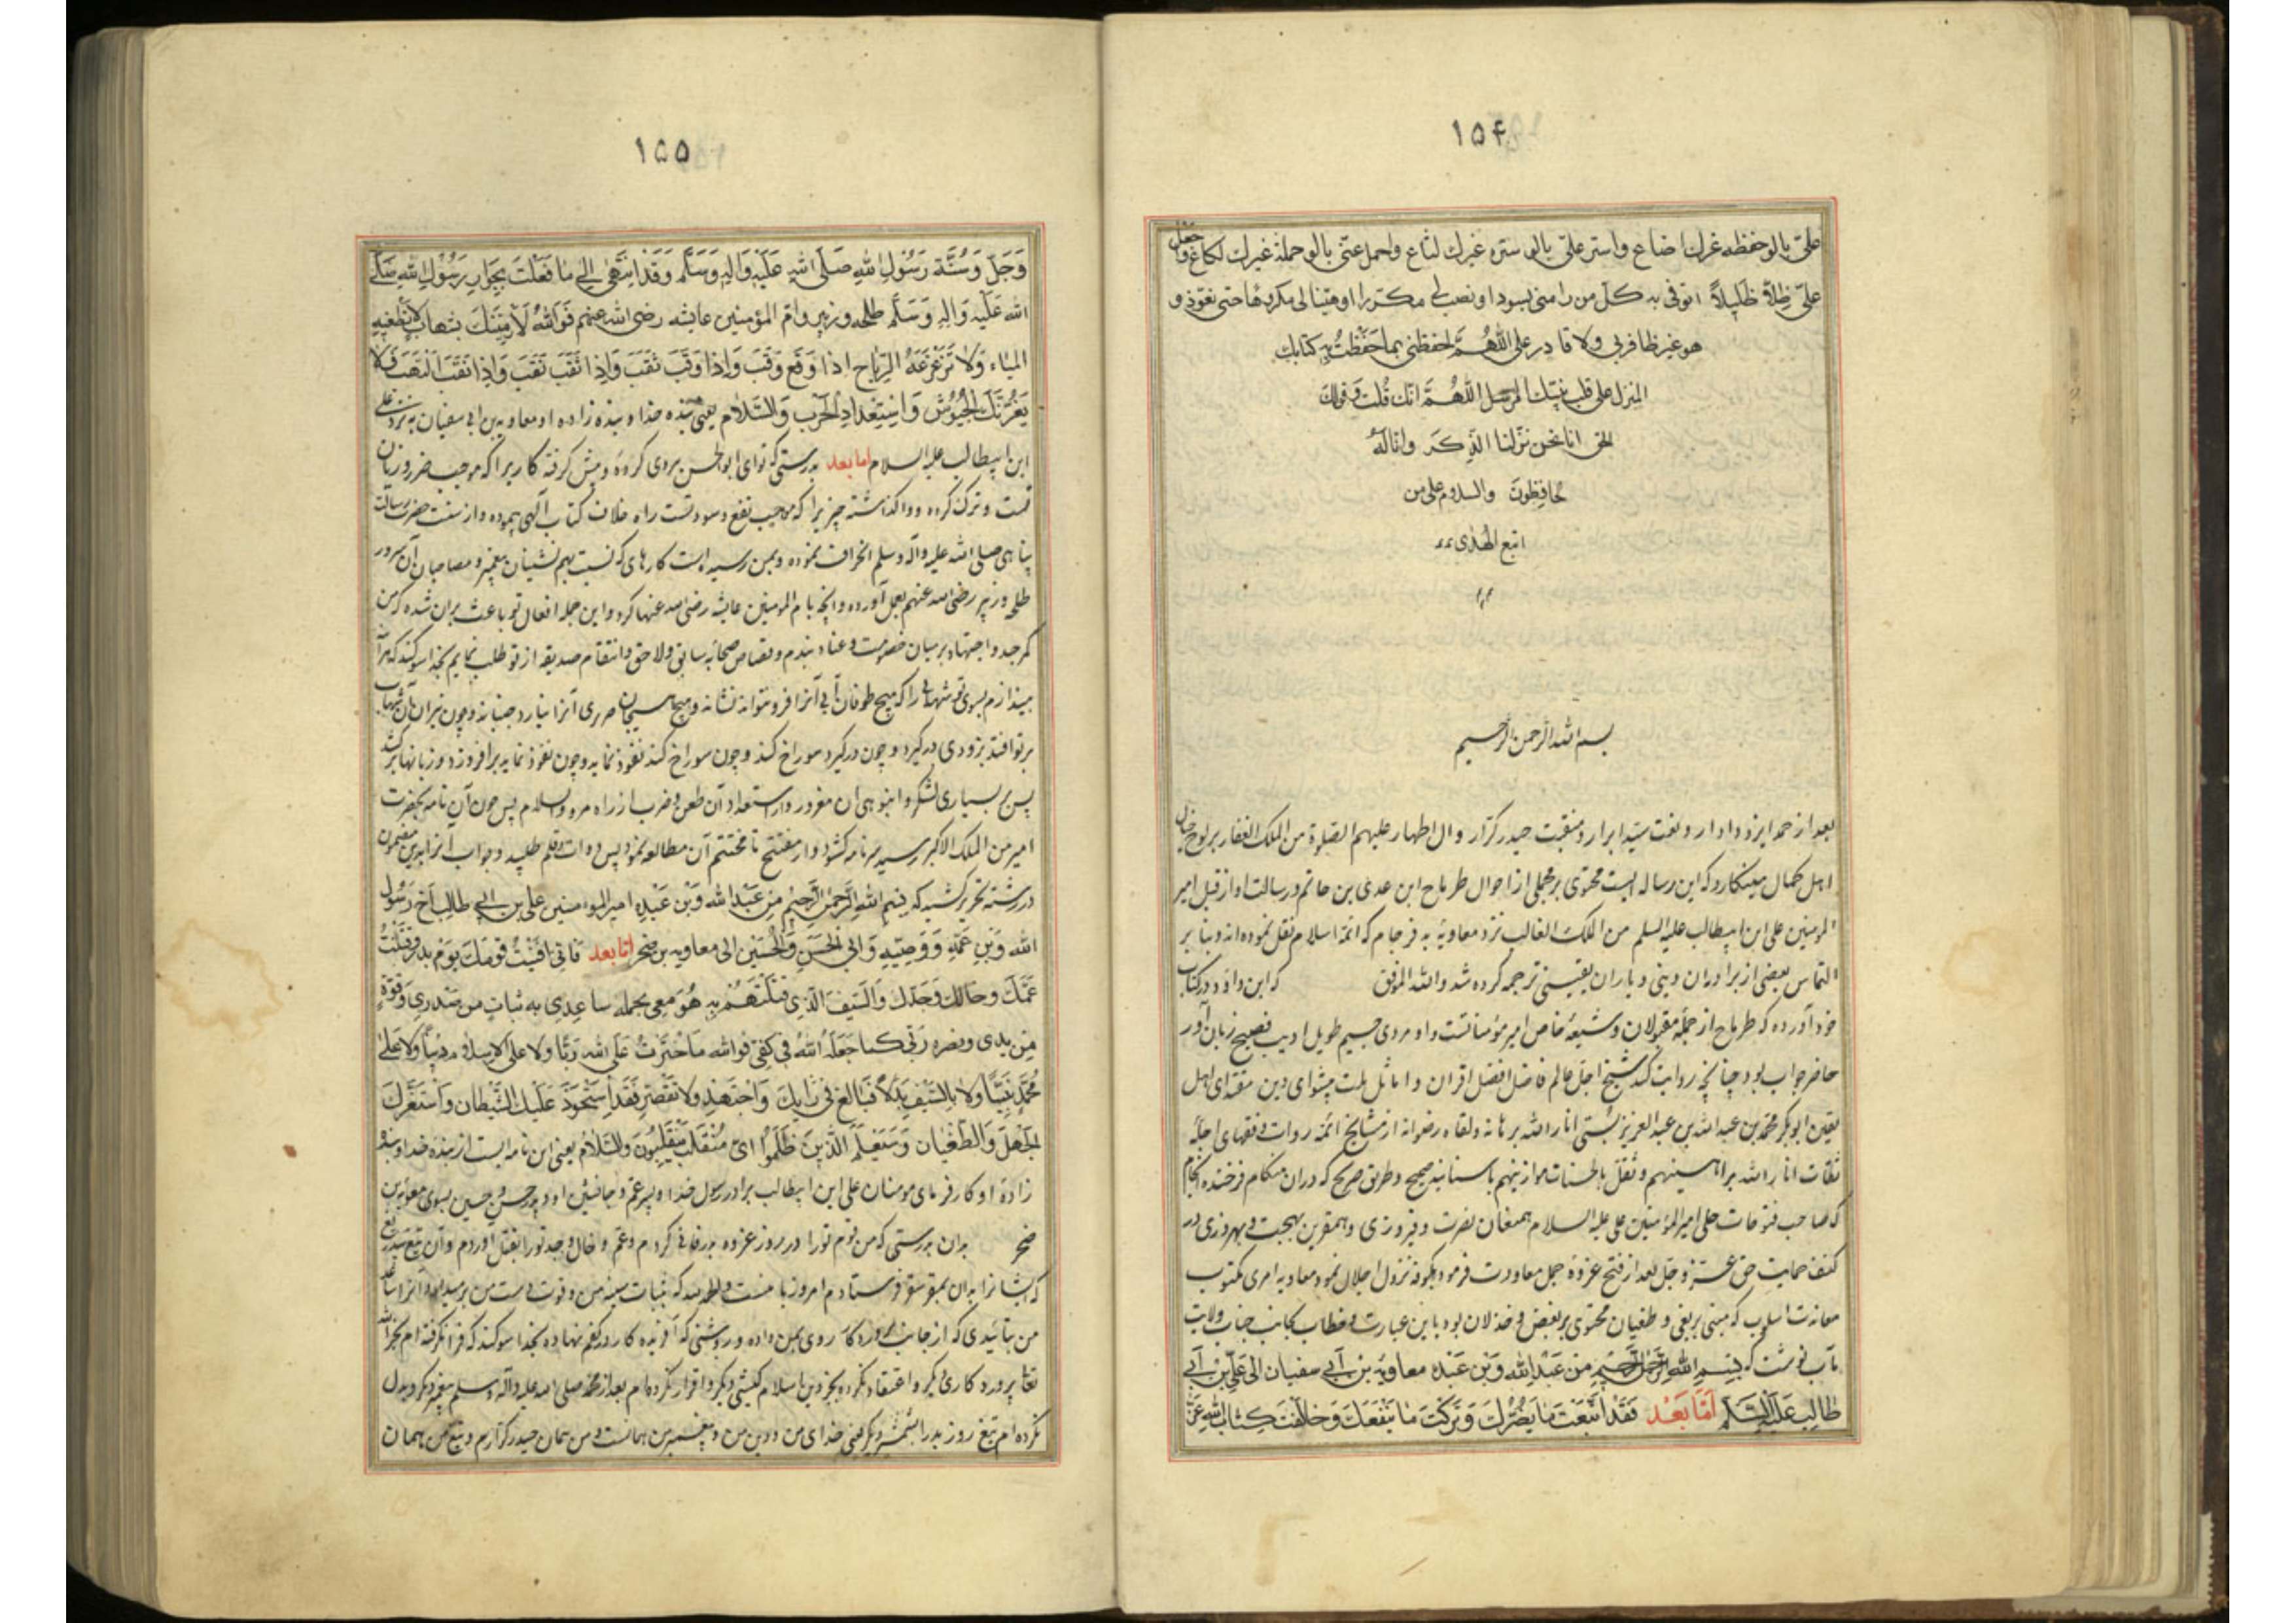 ۱۵۴
علیّ یالو حفظه غیرك لضاع واستر علیّ یالو ستره غیرك لشاع واحمل عنّی یالو حمله غیرك لکاع واجعل
علیّ ظِلّاً ظَلیلاً اتوقی به کلّ من رامنی بسوء او نصب لی مکرًا او هیّأ لی مکروهًا حتی نعوّذ و
هو غیر ظافر بی ولا قادر علی اللّٰهُمَّ احفظنی بما حَفَظْتُ بِه کتابك
المنزل علی قلب نبیّك المرسل اللّٰهُمَّ انّك قُلت وَقولك
الحق انا نحن نزّلنا الذِکر وانا لَهُ
لحافِظونَ والسلام علی من
اتبع الهُدی
بسم الله الرحمن الرحیم
بعد از حمد ایزد دادار و نعت سید ابرار و منقبت حیدر کرّار و ال اطهار علیهم الصلوة من الملک الغفار بر لوح خیال
اهل کمال مینگارد که این رساله ایست محتوی بر مجملی از احوال طرماح ابن عدی بن حاتم و رسالت او از قبل امیر
المومنین علی ابن ابیطالب علیه السلم من الملك الغالب نزد معاویهٔ به فرجام که ائمهٔ اسلام نقل نموده اند و بنا بر
التماس بعضی از برادران دینی و یاران یقینی ترجمه کرده شد والله الموفق که ابن داود در کتاب
خود آورده که طرماح از جملهٔ مقبولان و شیعهٔ خاص امیر مؤمنانست و او مردی جسیم طویل ادیب فصیح زبان آور
حاضر جواب بود چنانچه روایت کند شیخ اجل عالم فاضل افضل اقران و اماثل ملت پیشوای دین مقتدای اهل
یقین ابوبکر محمد بن عبدالله بن عبدالعزیز بستی انار الله برهانه ولقاه رضوانه از مشایخ ائمه روات و فقهای اجلّهٔ
ثقات انار الله براهینهم و ثقل بالحسنات موازینهم باسانید صحیح و طریق صریح که دران هنگام فرخنده انجام
که صاحب فتوحات جلی امیر المؤمنین علی علیه السلام همعنان نصرت و فیروزی و همقرین بهجت و بهروزی در
کنف حمایت حق عزّ و جل بعد از فتح غزوهٔ جمل معاودت فرمود بکوفه نزول اجلال نمود معاویه امری مکتوب
معاندت اسلوب که مبنی بر بغی و طغیان محتوی بر بغض و خذلان بود باین عبارت و خطاب بجانب جناب ولایت
مآب نوشت که بِسْمِ اللهِ الرَّحْمٰنِ الرَّحیمِ مِن عَبْدِ الله وَبْن عَبْدِه معاویَة بن أبی سفیان الی عَلیّ بن أبی
طالِب عَلَیْهِ السَّلَم اَمّا بَعْد فَقَد اتَّبَعْتَ مَا یَضُرُّكَ وَتَرَکْتَ مَا یَنْفَعُكَ وَخالَفْتَ کِتابَ اللهِ عَزَّ
۱۵۵
وَجَلَّ وَسُنَّةَ رَسُولِ اللهِ صَلَّی اللهُ عَلَیْهِ وَالِهِ وَسَلَّم وَقَد انْتَهیٰ اِلَیَّ مٰا فَعَلْتَ بِحَوارِی رَسُولِ اللهِ صَلَّی
الله عَلَیْهِ وَالِهِ وَسَلَّم طلحه و زبیر وامّ المؤمنین عایشه رضی الله عنهم فَوَاللهُ لَاَرْمِیَنَّكَ بشهاب لا تُطْفیهِ
المیٰاء وَلا تُزَعْزِعُهُ الرِیّاح اذا وَقَعَ وَقَبَ وَاِذا وَقَبَ ثَقَبَ وَاِذا ثَقَبَ نَقَبَ وَاِذا نَقَبَ الْتَهَبَ فَلا
یَغُرَّنَّكَ الْجُیُوشُ وَاسْتِعْدادِ الْحَرْب وَالسَّلام یعنی بنده خدا و بنده زاده او معاویه بن ابی سفیان به نزد علی
ابن ابیطالب علیه السلام اما بعد بدرستی که توای ابوالحسن پیروی کردهٔ و پیش گرفته کاریرا که موجب ضرر و زیان
تست و ترک کرده و واگذاشته چیزیرا که موجب نفع و سود تست راه خلاف کتاب آلهی پیموده و از سنت حضرت رسالت
پناهی صلی الله علیه وآله وسلم انحراف نموده و بمن رسیده است کارهای که نسبت بهم نشینان پیغمبر و مصاحبان آن سرور
طلحه و زبیر رضی الله عنهم بعمل آورده و آنچه با م المؤمنین عایشه رضی الله عنها کرد و این جمله افعال تو باعث بران شده که من
کمر جد و اجتهاد بر میان خصومت و عناد بندم و قصاص صحابهٔ سابق و لاحق و انتقام صدیقه از تو طلب نمایم بخدا سوگند که هر آینه
بیندازم بسوی تو شهابی را که هیچ طوفان آبی آنرا فرو نتواند نشاند و هیچ صرصری آنرا نیارد جنبانید و چون نیران آن شهاب
بر تو افتد بزودی درگیرد و چون درگیرد سوراخ کند و چون سوراخ کند نفوذ نماید و چون نفوذ نماید برافروزد و زبانها برکشد
پس بر بسیاری لشکر و انبوهی ان مغرور و از استعداد آن طعن و ضرب از راه مرو والسلام پس چون آن نامه بحضرت
امیر من الملک الاکبر رسید سر نامه گشود و از مفتتح تا مختتم آن مطالعه نمود پس دوات و قلم طلبید و جواب آنرا بدین مضمون
در رشته تحریر کشید که بِسْمِ اللهِ الرَّحْمٰنِ الرَّحیمِ مِن عَبْدِ الله وَبْن عَبْدِه امیر المومنین علی بن ابی طالِب اَخِ رَسُول
الله وَبْنِ عَمِّهِ وَوَصِیِّهِ وَابی الْحَسَنِ وَالْحُسَیْنِ الی معاویه بن صخر امّا بعد فَانّی اَفْنَیْتُ قَوْمَكَ یَوْمَ بدر وَقَتَلْتُ
عَمَّكَ وخالَكَ وَجَدَّك وَالسَّیفَ الَّذِی قَتَلْتَهُمْ بِه هُوَ مَعی یحمله ساعِدی به ثبات من صَدری وَقُوَّةٍ
مِن یدی ونصره رَبّی کما جَعَلَهُ اللهُ فی کَفّی فوالله مَا اخْتَرْتُ عَلَی الله رَبًّا ولا علی الاسلام دیناً ولا عَلیٰ
مُحَمَّدٍ نَبِیًّا وَلا بِالسَّیْفِ بَدَلاً فَبالِغ فی رَأیِكَ وَاجْتَهِدْ ولا تُقَصِّر فَقَد اسْتَحْوَذَ عَلَیْكَ الشَّیْطان وَاسْتَفَزَّكَ
الجَهْلُ وَالطُّغْیان وَسَیَعْلَمُ الَّذینَ ظَلَمُوا ایّ مُنْقَلَبٍ یَنْقَلِبُونَ والسَّلامُ یعنی این نامه ایست از بنده خدا و بنده
زادهٔ او کارفرمای مومنان علی ابن ابیطالب برادر رسول خدا و پسر عم و جانشین او و پدر حسن و حسین بسوی معاویهٔ بن
صخر بدان بدرستی که من قوم تورا در روز غزوه بدر فانی کردم و عم و خال و جد تورا بقتل آوردم و آن تیغ بیدریغ
که ایشانرا بدان بمقر سقر فرستادم امروز با منست
من بتائیدی که از جانب پروردگار روی بمن داده و بروشی که آفریده کار در کفم نهاده بخدا سوگند که فرا نگرفته ام بجز الله
تعا پروردکاری دیکر و اعتقاد نکرده بجز دین اسلام کیشی دیکر و اقرار نکرده ام بعد از محمد صلی الله علیه وآله وسلم پیغمبر دیکر و بدل
نکرده ام تیغ روز بدر را بشمشیر دیکر یعنی خدای من و دین من و پیغمبر من همانست و من همان حیدر کرّارم و تیغ من همان